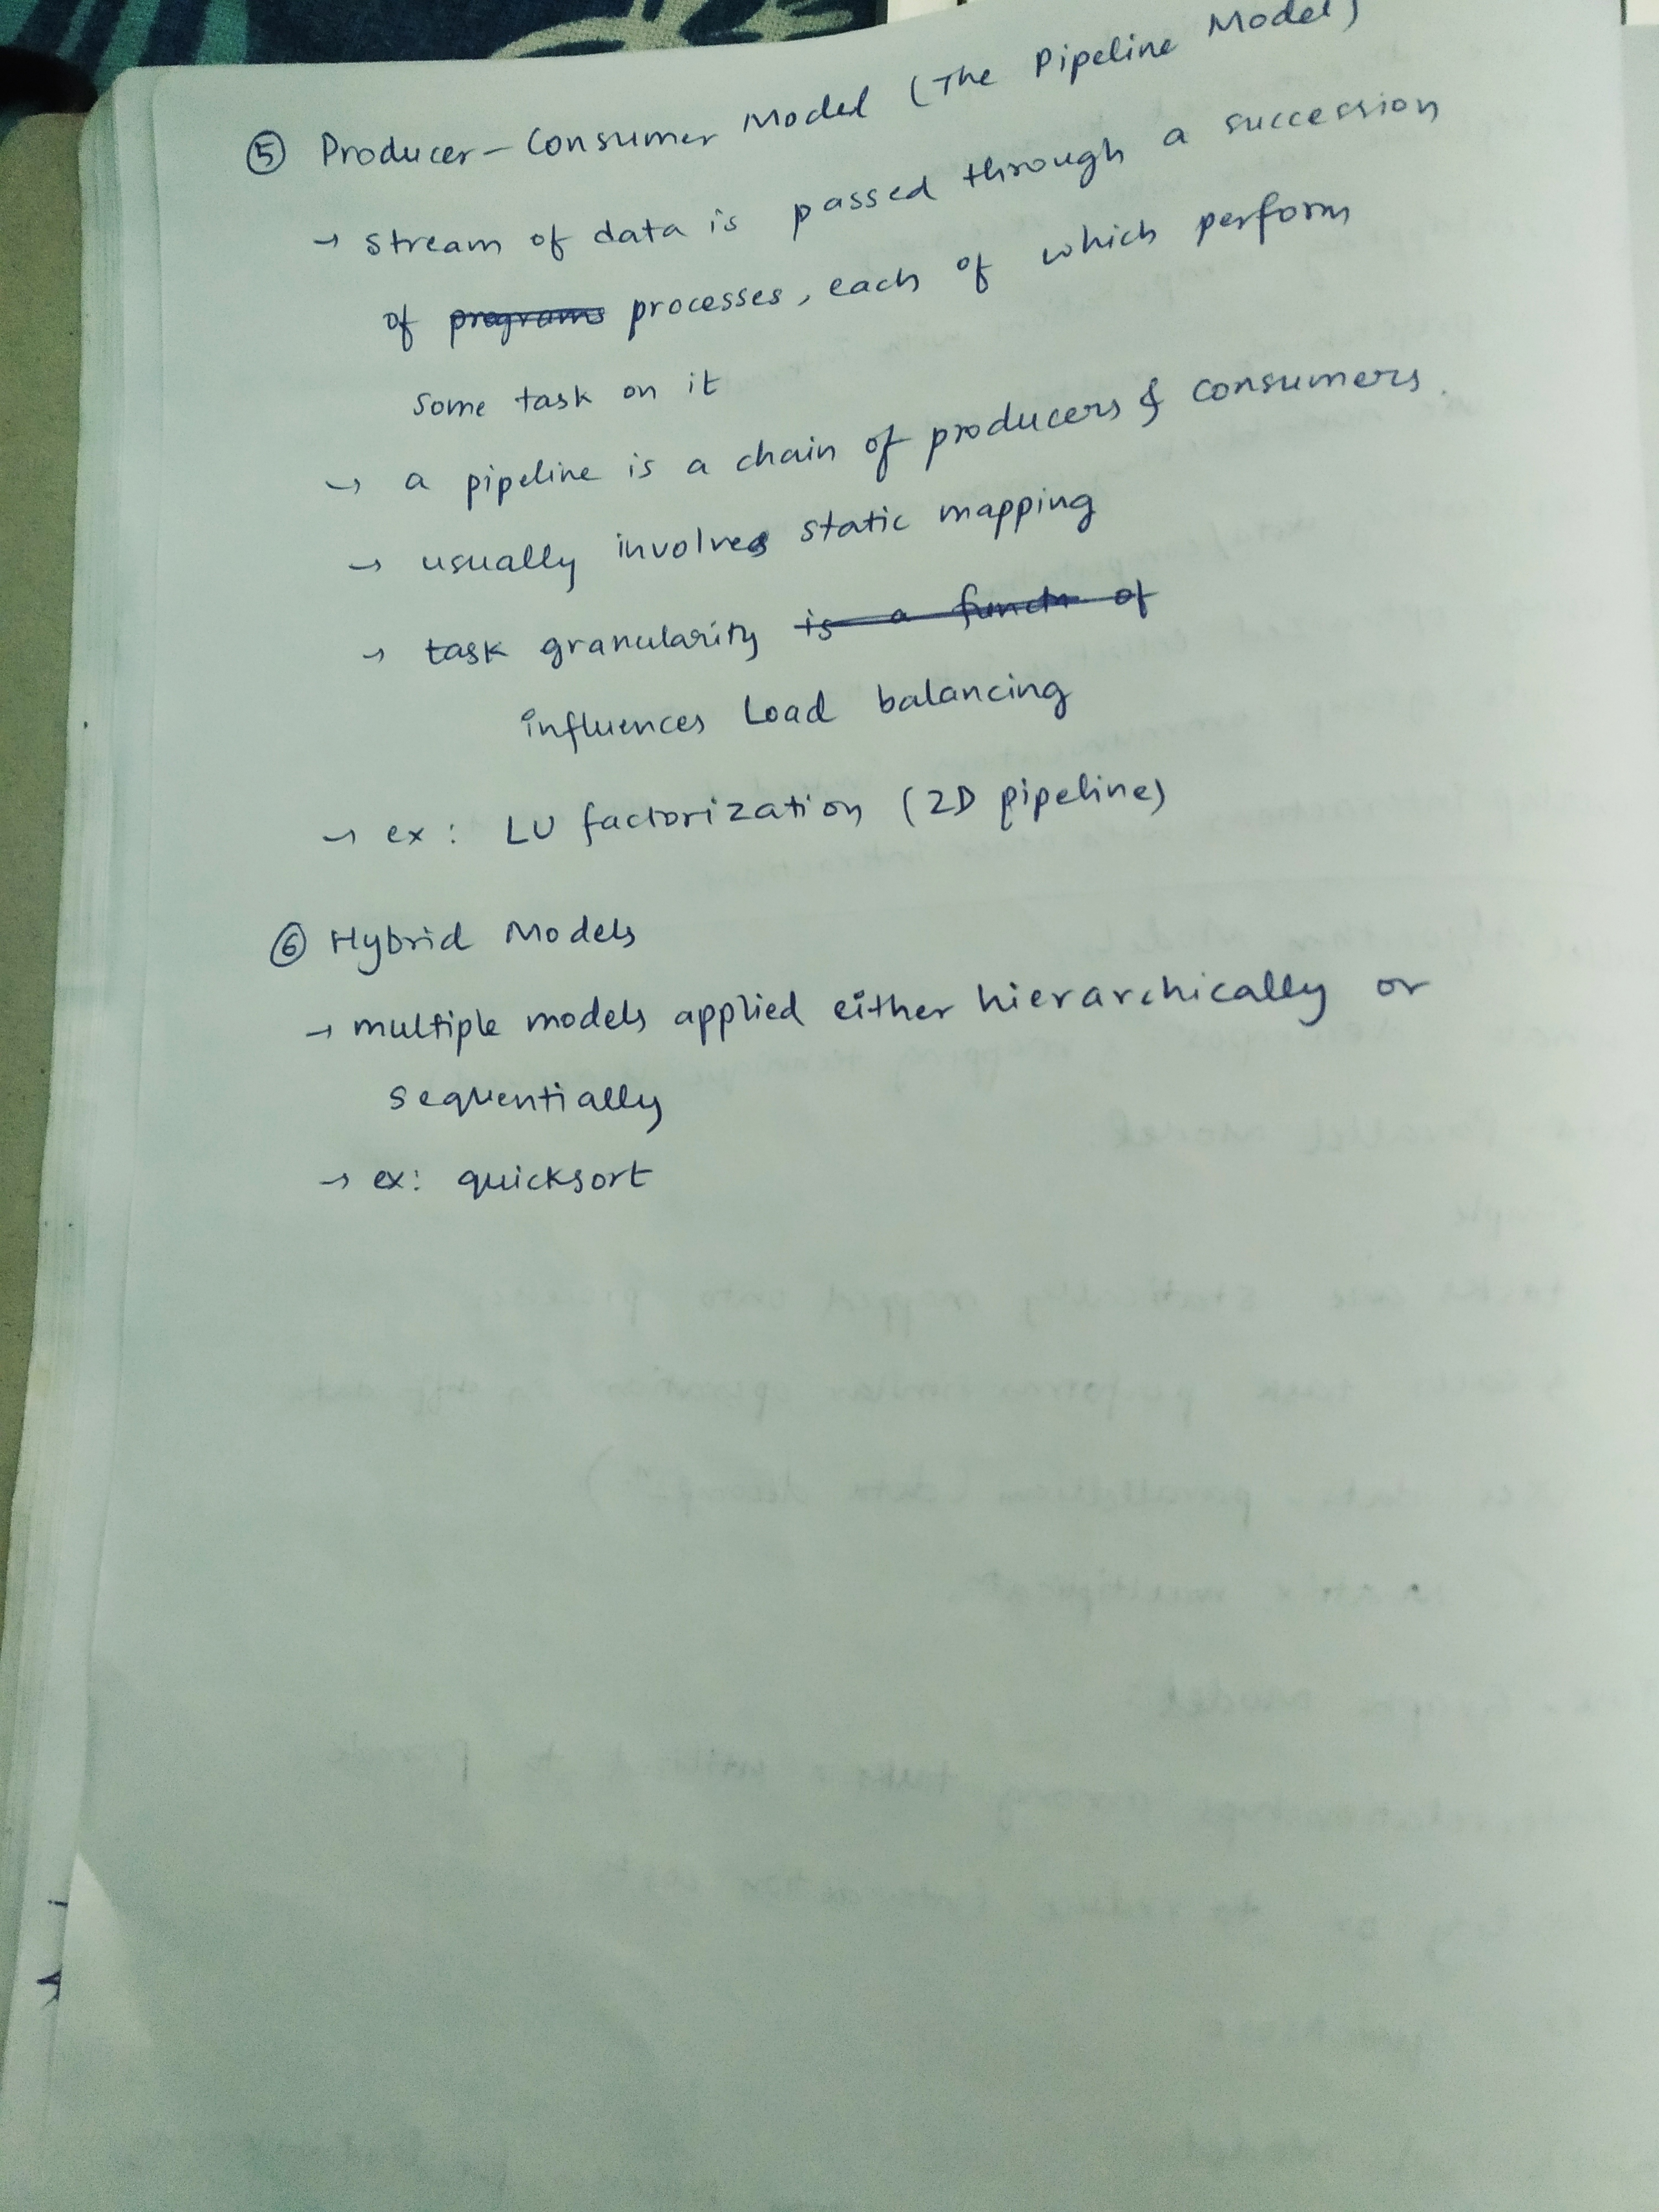 ⑤ Producer-Consumer Model (The Pipeline Model)
→ stream of data is passed through a succession
of programs processes, each of which perform
some task on it
→ a pipeline is a chain of producers & consumers.
→ usually involves static mapping
→ task granularity is a functn of
influences Load balancing
→ ex: LU factorization (2D pipeline)
⑥ Hybrid Models
→ multiple models applied either hierarchically or
sequentially
→ ex: quicksort